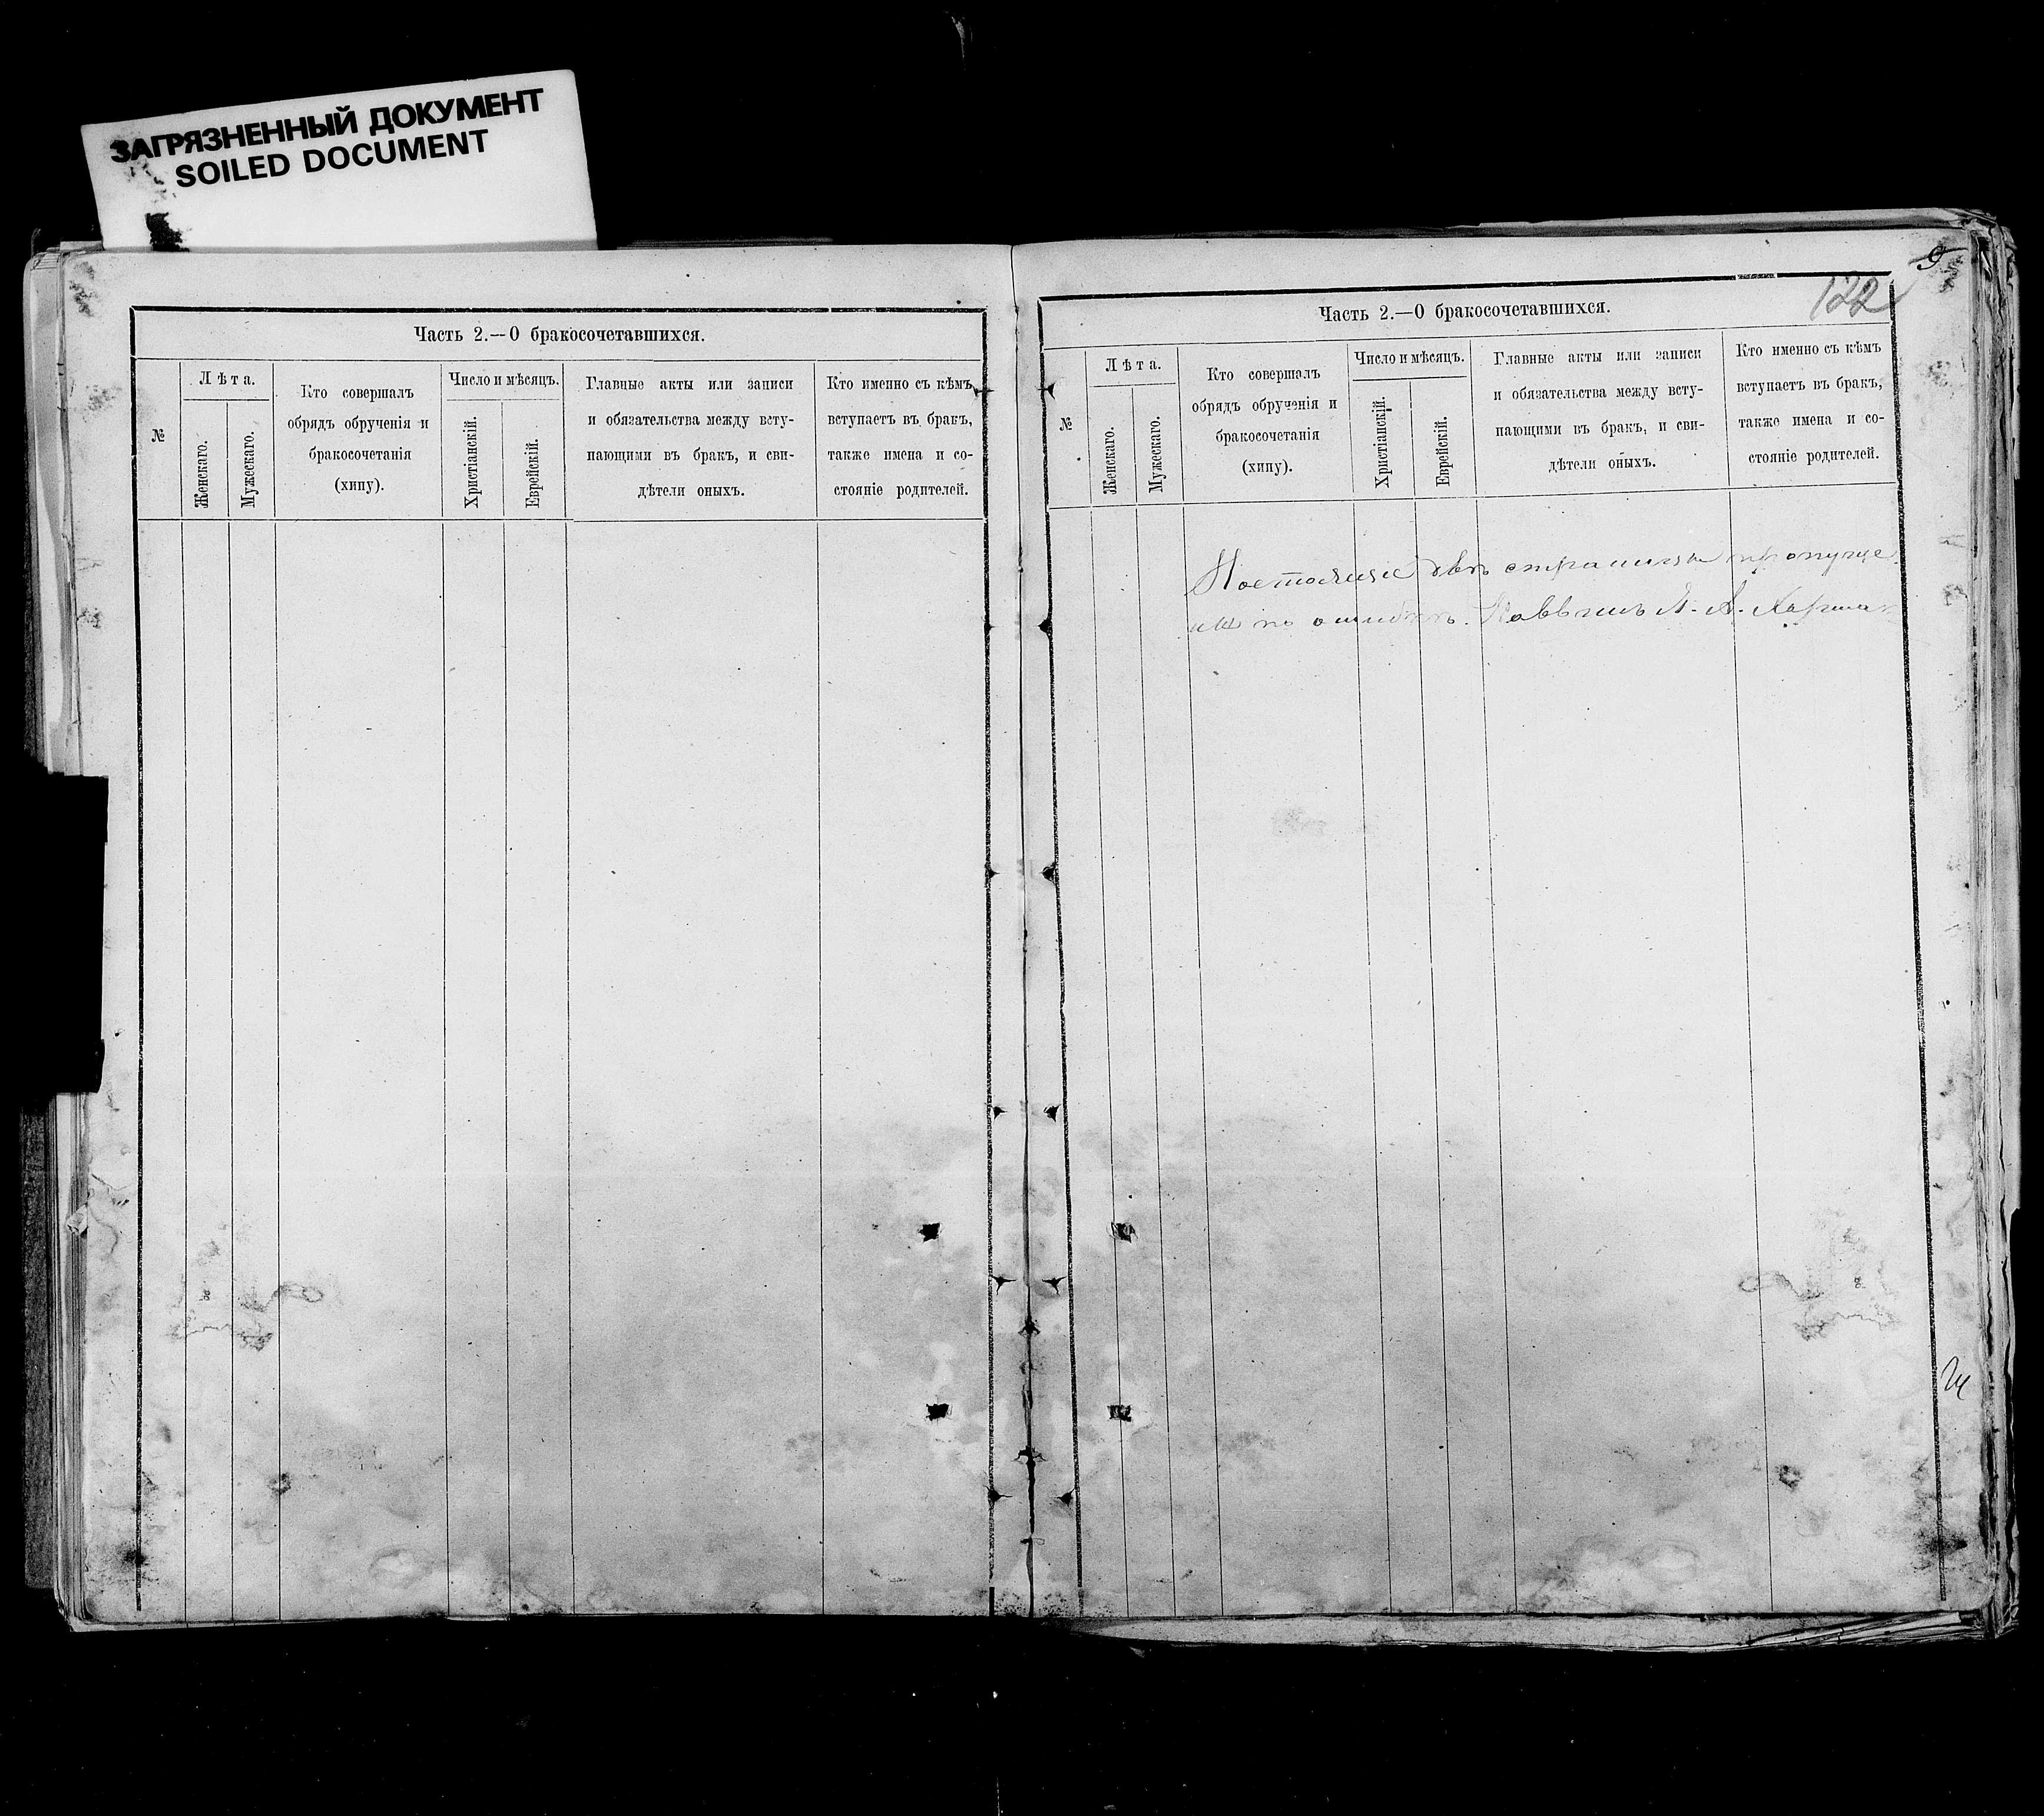 ЗАГРЯЗНЕННЫЙ ДОКУМЕНТ
SOILED DOCUMENT
Часть 2.—О бракосочетавшихся.
№
Лѣта.
Женскаго.
Мужескаго.
Кто совершалъ
обрядъ обрученія и
бракосочетанія
(хипу).
Число и мѣсяцъ.
Христіанскій.
Еврейскій.
Главные акты или записи
и обязательства между всту-
пающими въ бракъ, и сви-
дѣтели оныхъ.
Кто именно съ кѣмъ
вступаетъ въ бракъ,
также имена и со-
стояніе родителей.
9
122
Часть 2.—О бракосочетавшихся.
№
Лѣта.
Женскаго.
Мужескаго.
Кто совершалъ
обрядъ обрученія и
бракосочетанія
(хипу).
Число и мѣсяцъ.
Христіанскій.
Еврейскій.
Главные акты или записи
и обязательства между всту-
пающими въ бракъ, и сви-
дѣтели оныхъ.
Кто именно съ кѣмъ
вступаетъ въ бракъ,
также имена и со-
стояніе родителей.
Настоящіе двѣ страницы пропуще
ны по ошибкѣ. Раввинъ